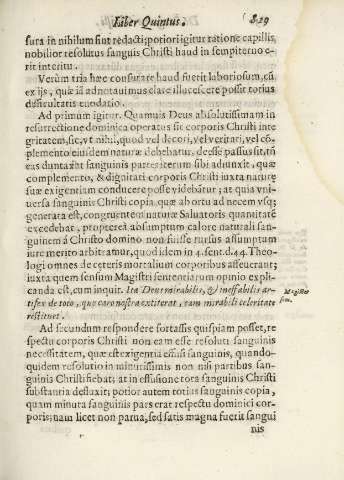 Liber Quintus. 829
sura in nihilum sint redacti; potiori igitur ratione capillis
nobilior resolutus sanguis Christi haud in sempiternū e-
rit interitu.
Verùm tria hæc confutare haud fuerit laboriosum, cū
ex ijs, quæ iā adnotauimus clare illucescere possit totius
difficultatis enodatio.
Ad primum igitur. Quamuis Deus absolutissimam in
resurrectione dominica operatus sit corporis Christi inte
gritatem, sic, vt nihil, quod vel decori, vel veritati, vel cō-
plemento eiusdem naturæ debebatur, deesse passus sit, tā
eas duntaxat sanguinis partes iterum sibi adiunxit, quæ
complemento, & dignitati corporis Christi iuxta naturę
suæ exigentiam conducere posse videbātur; at quia vni-
uersa sanguinis Christi copia, quæ ab ortu ad necem vsq;
generata est, congruentem naturæ Saluatoris quantitatē
excedebat, propterea absumptum calore naturali san-
guinem á Christo domino non fuisse rursus assumptum
iure merito arbitramur, quod idem in 4. sent. d. 44. Theo-
logi omnes de ceteris mortalium corporibus asseuerant;
iuxta quem sensum Magistri sententiarum opinio expli-
canda est, cum inquit. Ita Deus mirabilis, & ineffabilis ar-
Magister
tifex de toto, quo caro nostra extiterat, tam mirabili celeritate
sent.
restituet.
Ad secundum respondere fortassis quispiam posset, re
spectu corporis Christi non eam esse resoluti sanguinis
necessitatem, quæ est exigentia effusi sanguinis, quando-
quidem resolutio in minutissimis non nisi partibus san-
guinis Christi fiebat; at in effusione tota sanguinis Christi
substantia defluxit; potior autem totius sanguinis copia,
quam minuta sanguinis pars erat respectu dominici cor-
poris; nam licet non parua, sed satis magna fuerit sangui
nis